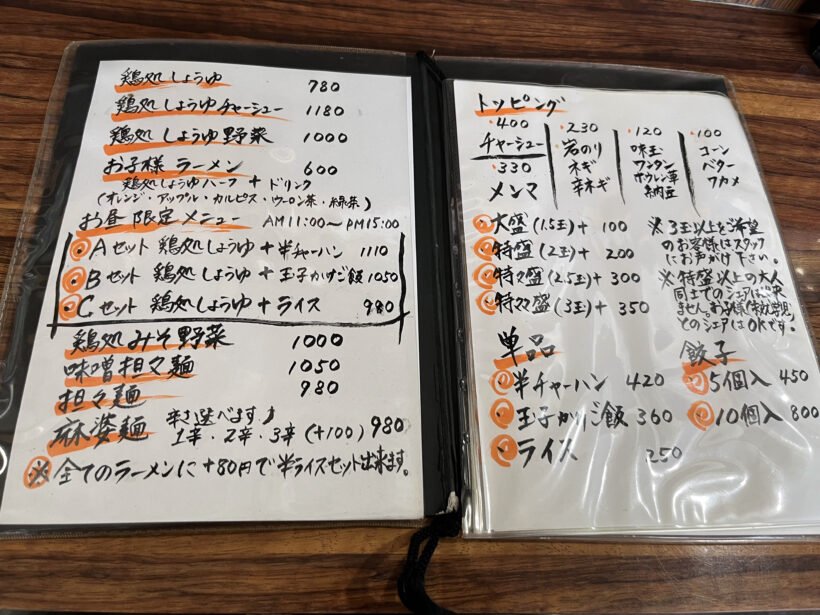 鶏処しょうゆ 780
鶏処しょうゆチャーシュー 1180
鶏処しょうゆ野菜 1000
お子様ラーメン 600
鶏処しょうゆハーフ + ドリンク
(オレンジ・アップル・カルピス・ウーロン茶・緑茶)
お昼限定メニュー AM11:00~PM15:00
・Aセット 鶏処しょうゆ+半チャーハン 1110
・Bセット 鶏処しょうゆ+玉子かけご飯 1050
・Cセット 鶏処しょうゆ+ライス 980
鶏処みそ野菜 1000
味噌担々麺 1050
担々麺 980
麻婆麺 辛さ選べます♪ 980
1辛・2辛・3辛(+100)
※全てのラーメンに+80円で半ライスセット出来ます。
トッピング
・400
チャーシュー
・330
メンマ
・230
岩のり
ネギ
辛ネギ
・120
味玉
ワンタン
ホウレン草
納豆
・100
コーン
バター
ワカメ
・大盛(1.5玉)+100
・特盛(2玉)+200
・特2盛(2.5玉)+300
・特22盛(3玉)+350
※3玉以上をご希望
のお客様はスタッフ
にお声がけ下さい。
※特盛以上の大人
同士でのシェアは出来
ません。お子様
とのシェアはOKです。
単品
・半チャーハン 420
・玉子かけご飯 360
・ライス 250
餃子
・5個入 450
・10個入 800